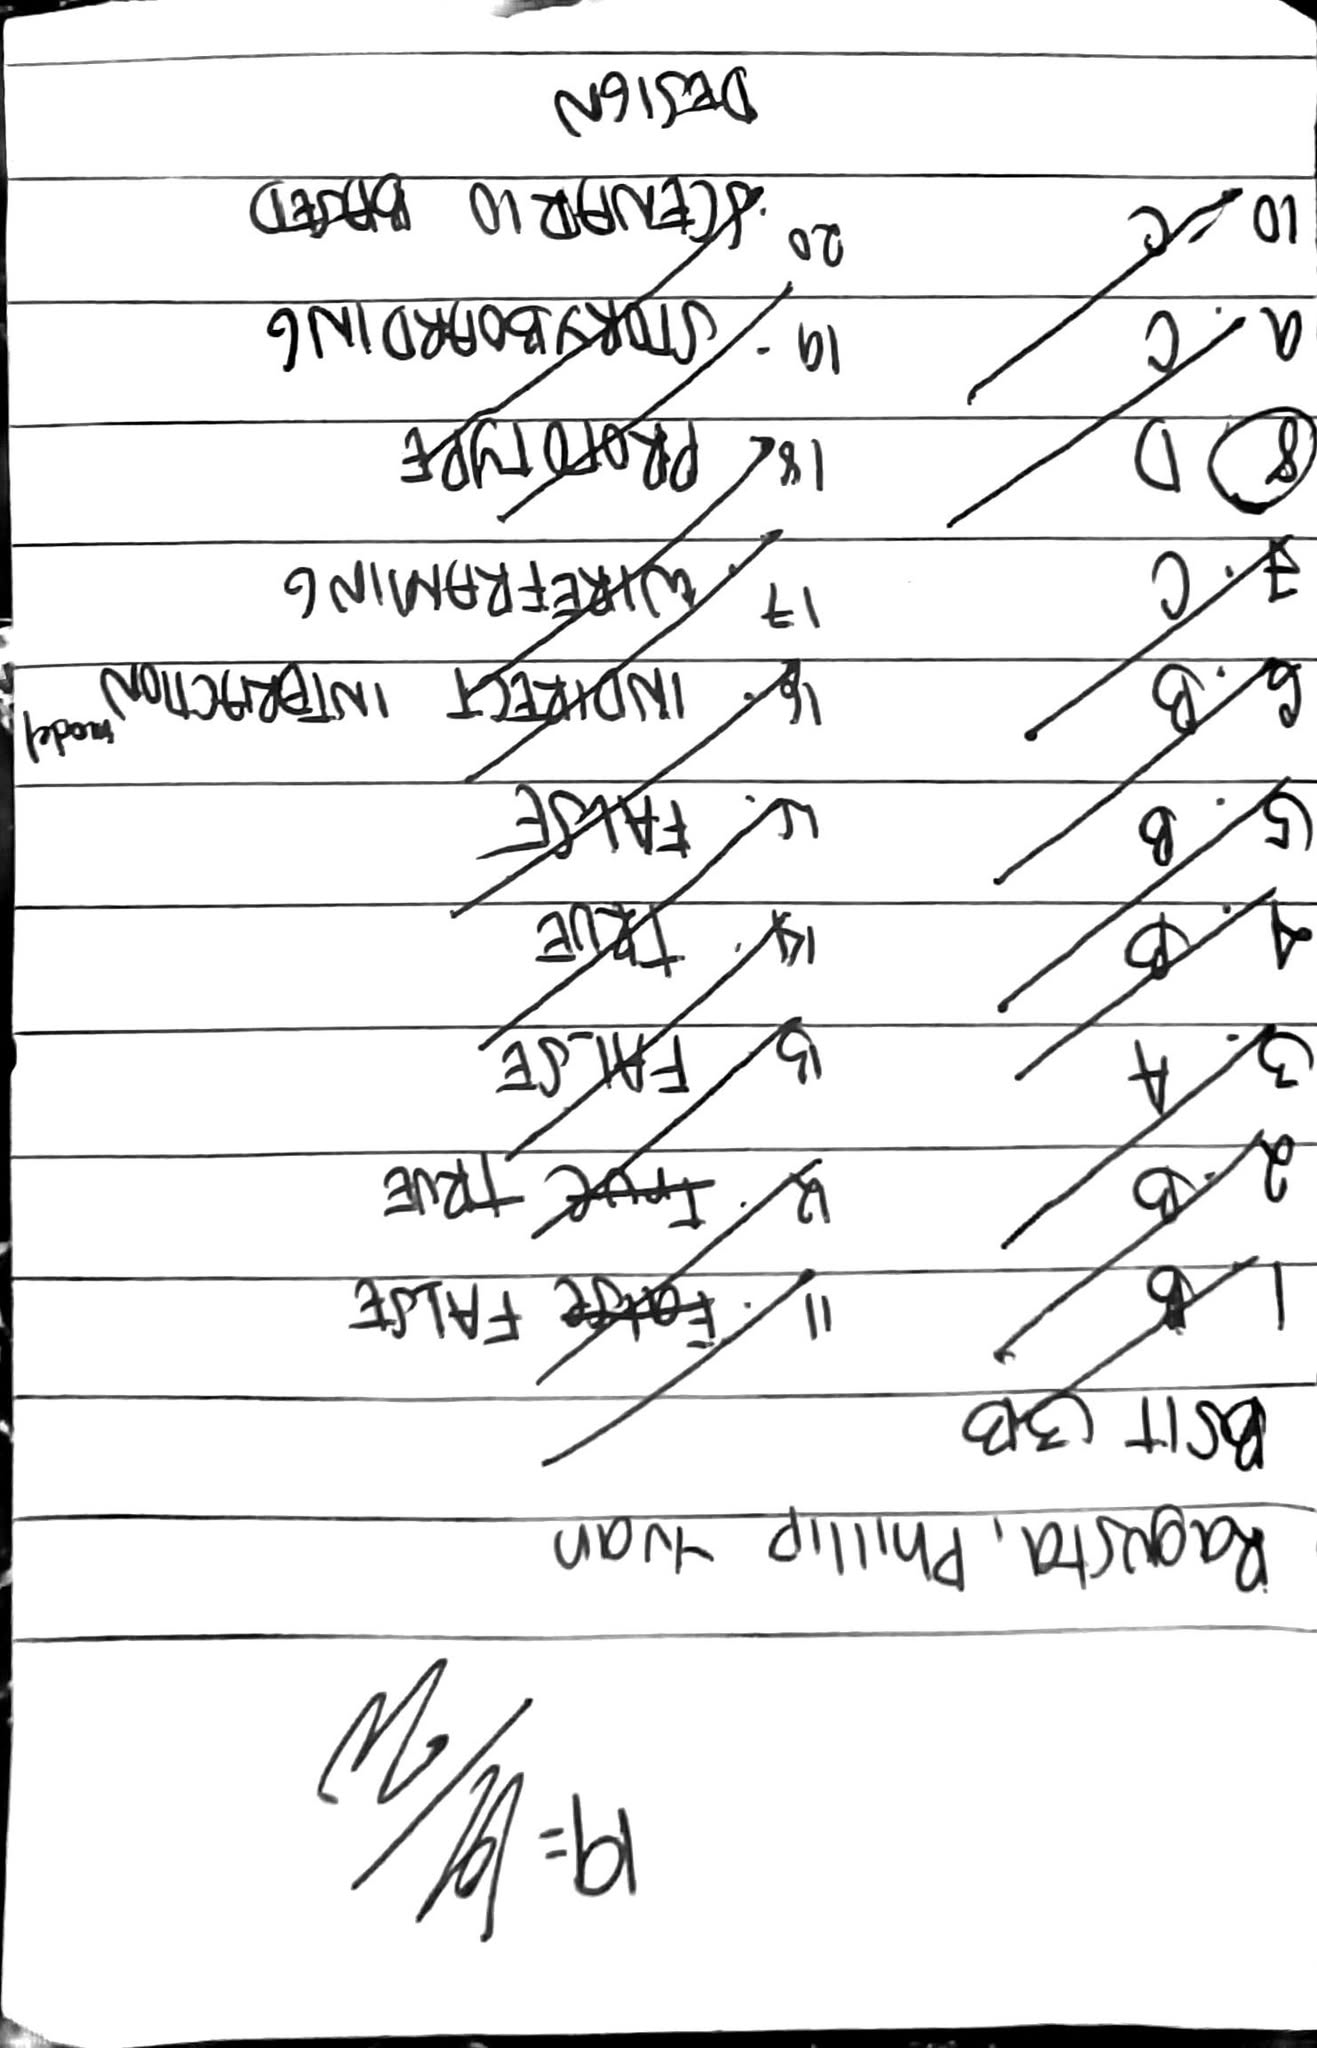 19 = 19/20
Ragusta, Phillip Yvan
BSIT 3B
1 B
2. B
3. A
4. B
5. B
6. B
7. C
8 D
9. C
10 C
11. False FALSE
12. True TRUE
13 FALSE
14. TRUE
15. FALSE
16. INDIRECT INTERACTION model
17. WIREFRAMING
18 PROTOTYPE
19. STORYBOARDING
20. SCENARIO BASED
DESIGN